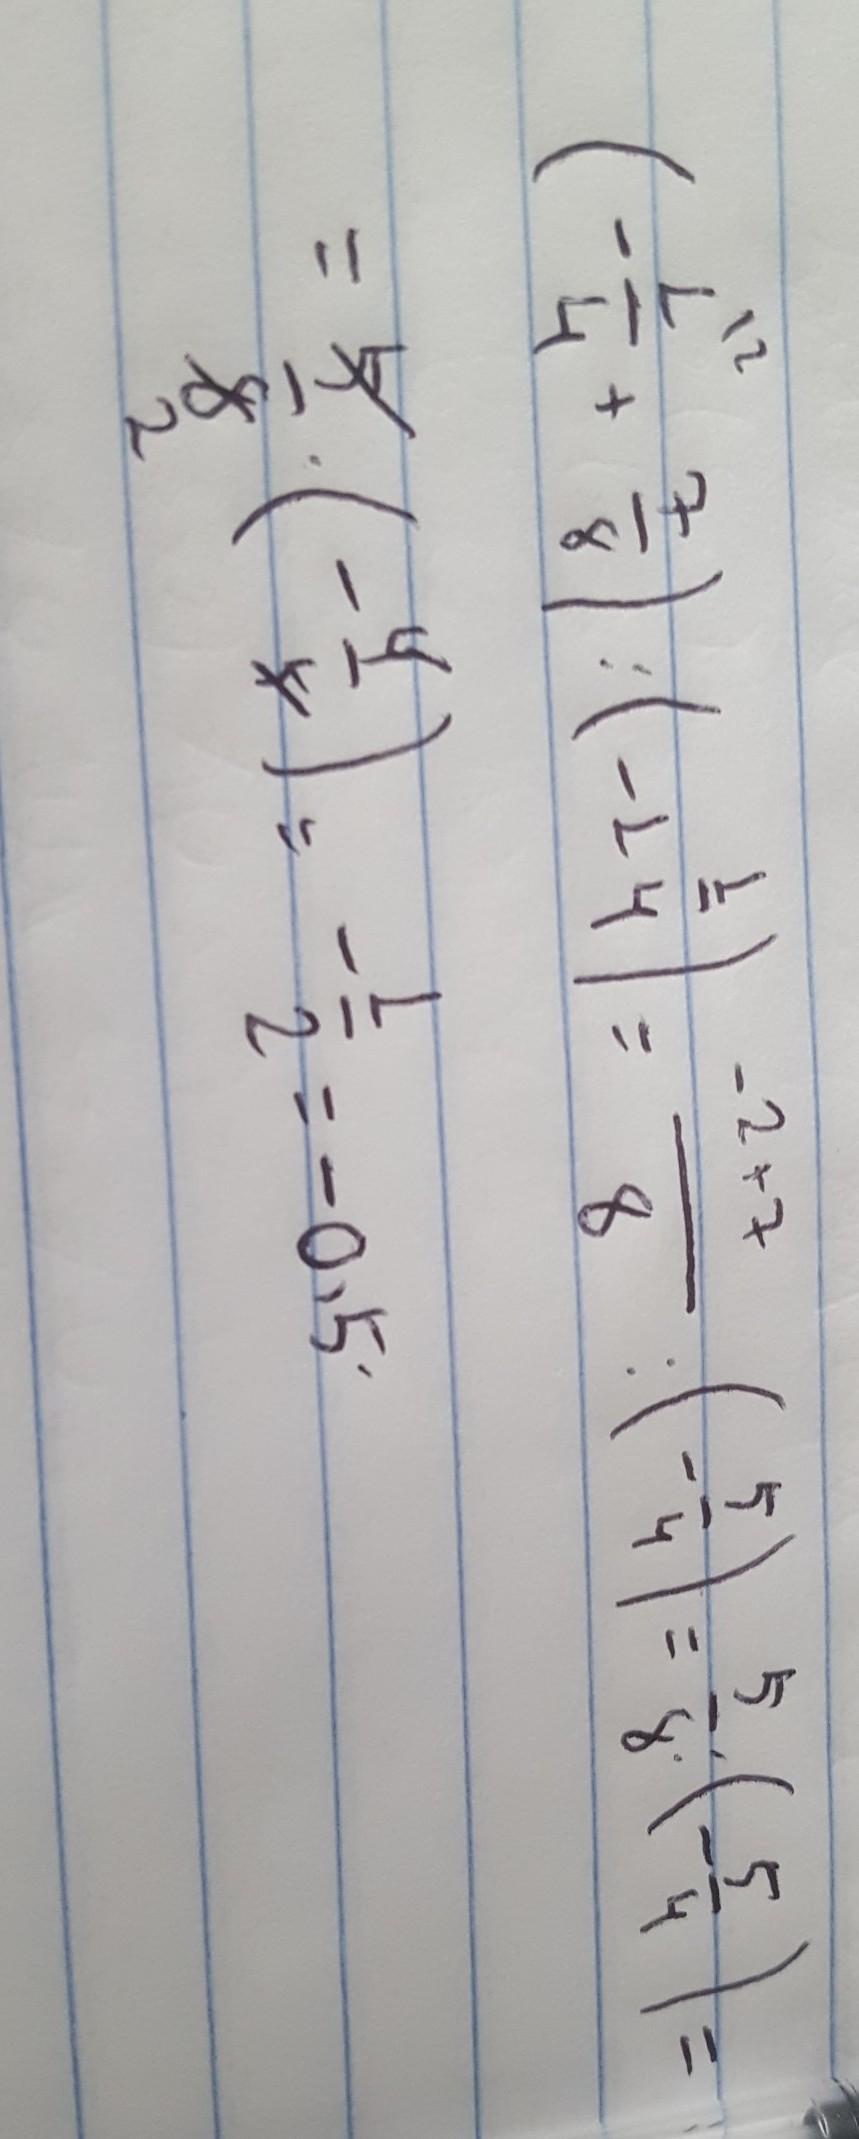 (-1/4 \2 + 7/8) : (-1 1/4) = -2+7/8 : (-5/4) = 5/8 : (-5/4) =
= 5/8 2 · (-4/5) = -1/2 = -0,5.